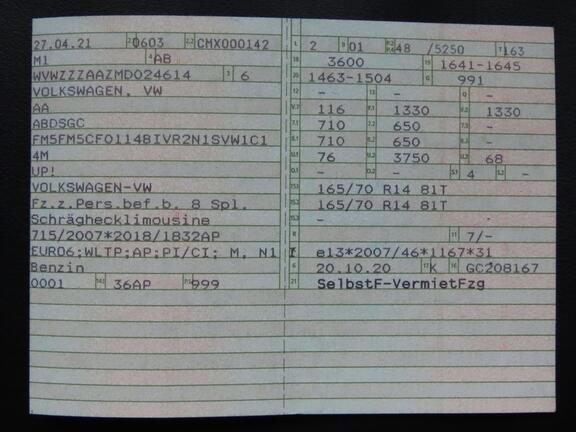 27.04.21 0603 CMX000142
M1 AB
WVWZZZAAZMD024614 6
VOLKSWAGEN, VW
AA
ABDSGC
FM5FM5CF0114BIVR2N1SVW1C1
4M
UP!
VOLKSWAGEN-VW
Fz.z.Pers.bef.b. 8 Spl.
Schräghecklimousine
715/2007*2018/1832AP
EURO6;WLTP;AP;PI/CI; M, N1 I
Benzin
0001 36AP 999
2 01 48 /5250 163
3600 1641-1645
1463-1504 991
- - -
116 1330 1330
710 650 -
710 650 -
76 3750 68
- - 4 -
165/70 R14 81T
165/70 R14 81T
-
7/-
e13*2007/46*1167*31
20.10.20 K GC208167
SelbstF-VermietFzg